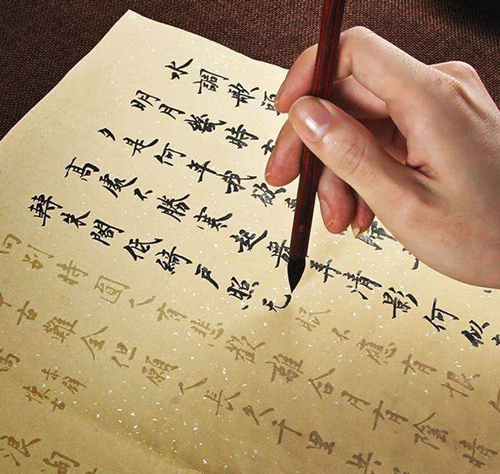 水調歌頭
明月幾時
夕是何年我欲
高處不勝寒起舞弄清影何似
轉朱閣低綺戶照无眠不應有恨
向別時圓人有悲歡離合月有陰晴
古難全但願人長久千里